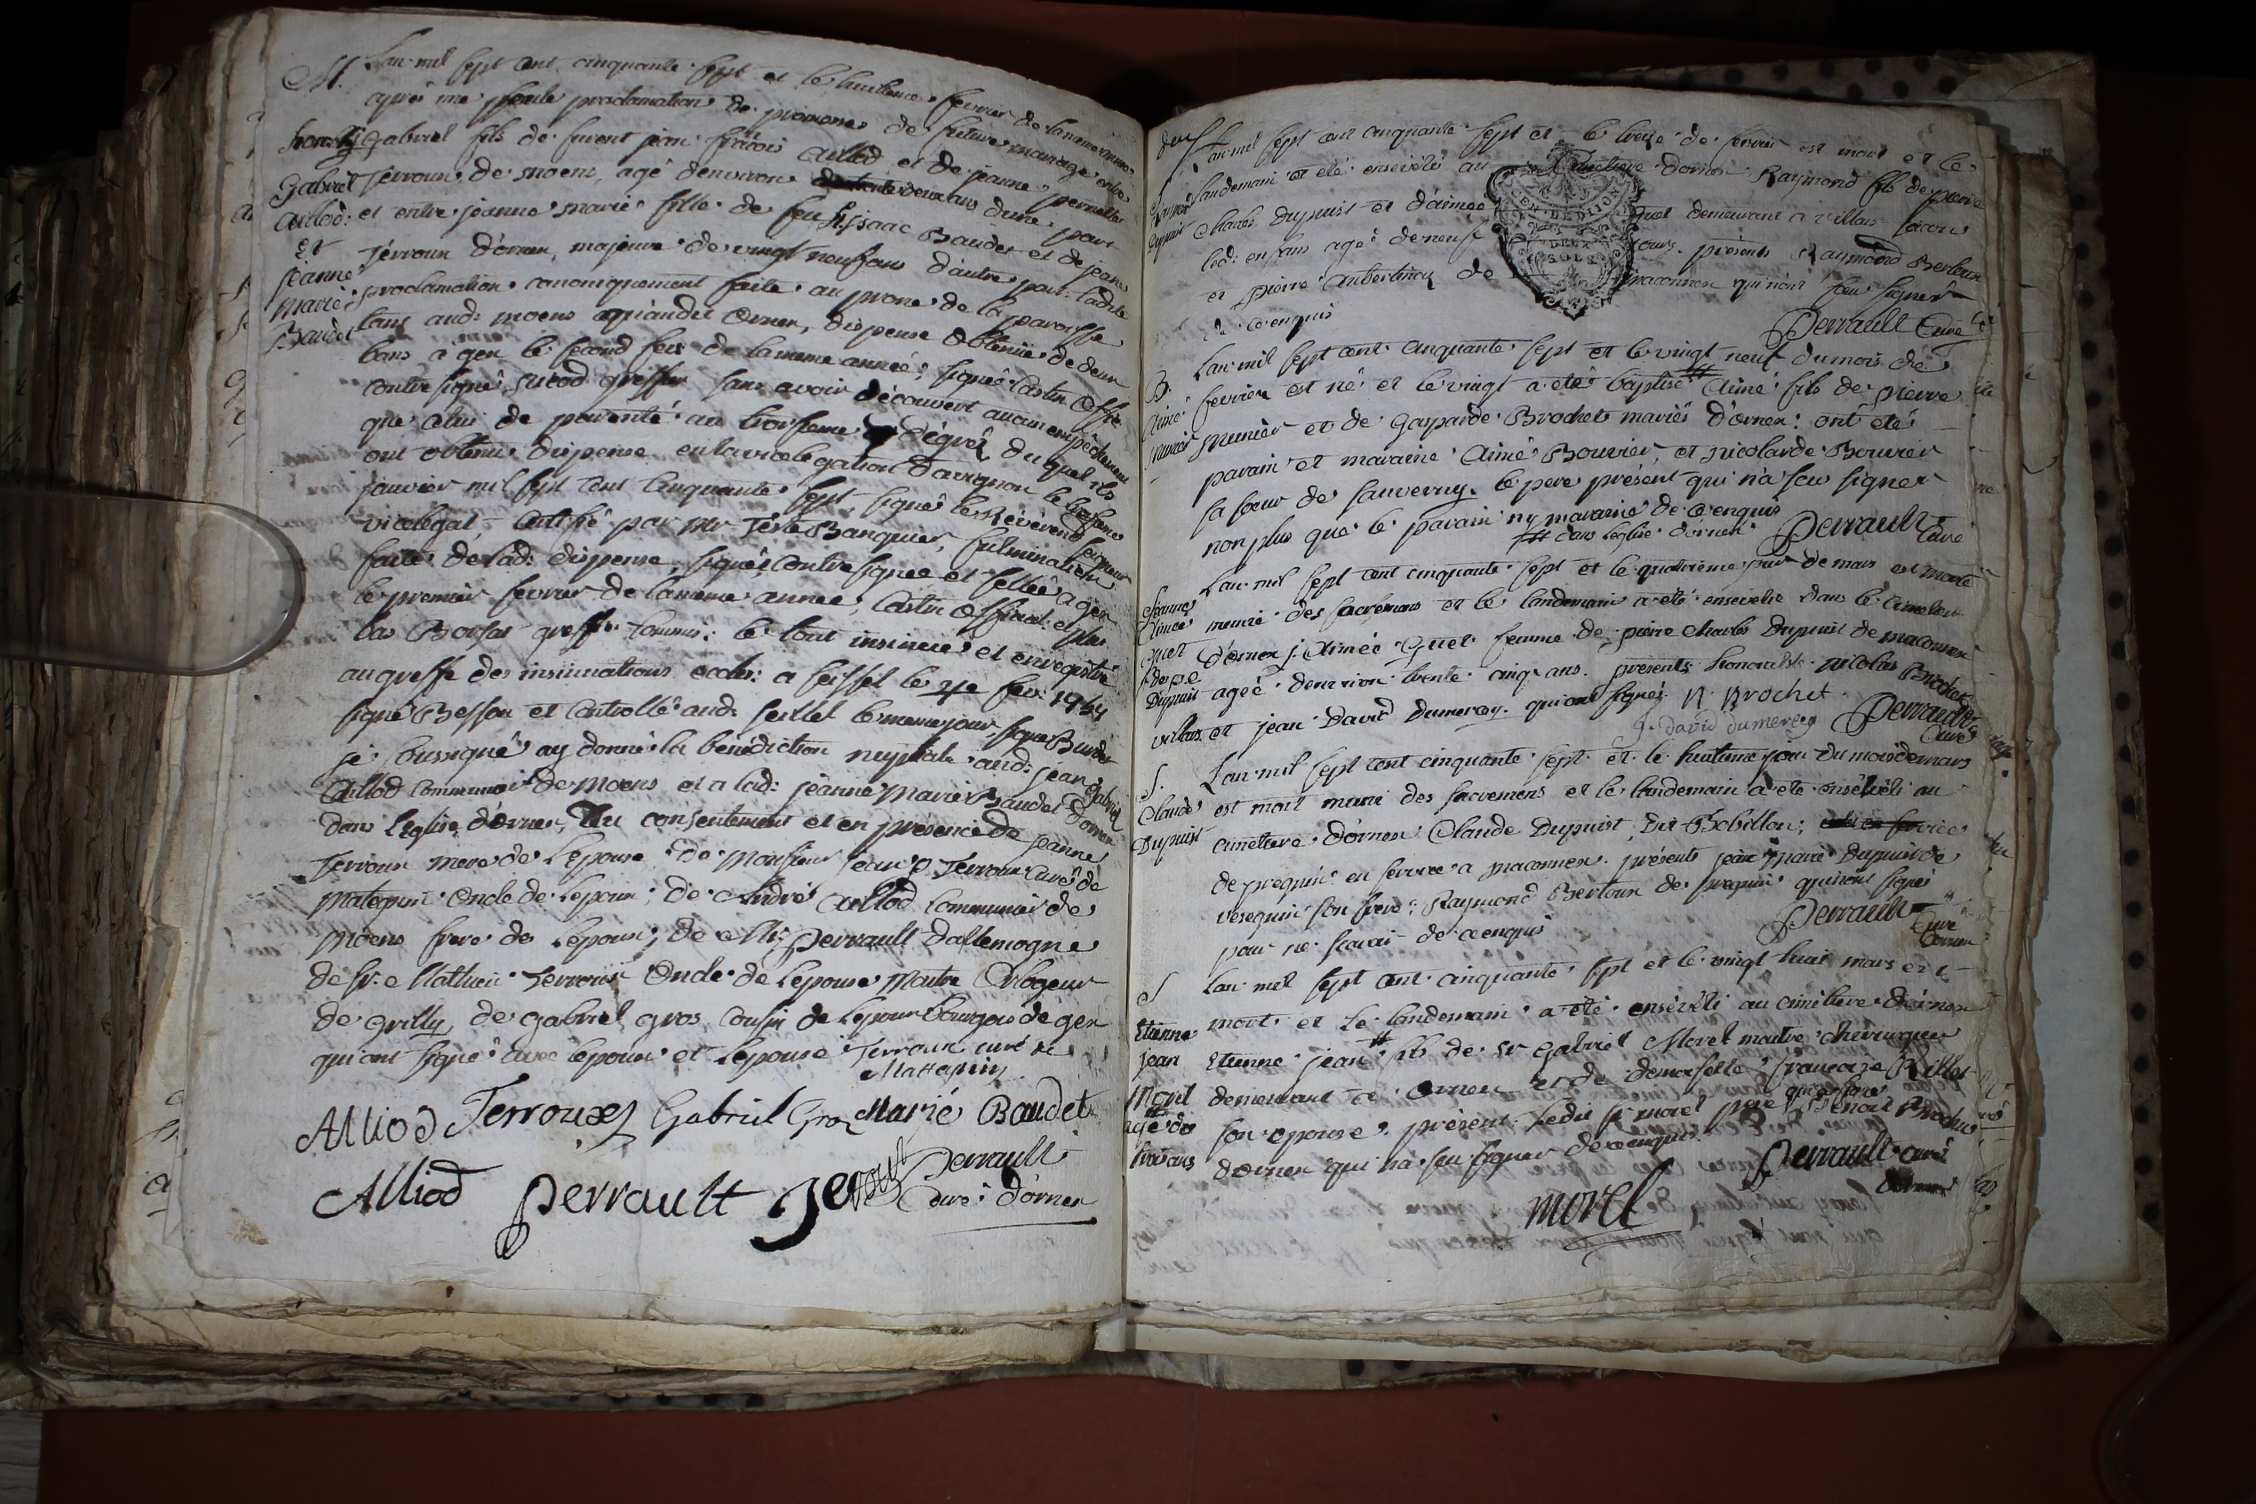 M. Lan mil sept cent cinquante sept et le huitieme fevrier de la meme année
après une seule proclamation de promesse de futur mariage entre
françois Gabriel fils de fuent jean françois Alliod et de jeanne pernette
Gabriel Terroux de moens, agé denviron deux ans dune part
Alliod: et entre jeanne marie fille de feu Sr isaac Baudet et de jeanne
et Terroux dornex, majeure de vingt neuf ans d'autre part: ladite
jeanne proclamation canoniquement faite au prone de la paroisse
marie Baudet tant aud: moens qu'audit Ornex, dispense obtenüe de deux
bans a gex le second fev: de la meme année, signé Castin offic:
contresigné greffier sans avoir découvert aucun empéchement
que celui de parenté au troisieme dégré duquel ils
ont obtenu dispense en la vicelegation davignon le
janvier mil sept cent cinquante sept signé le Révérend Seigneur
vicelegat, par Mr Banquier, fulmination
faite de lad: dispense, signée, contresignée et sellée a gex
le premier fevrier de la meme année, Castin Official: et plus
bas greffr. commis: le tout insinué et enregistré
au greffe des insinuations eccles: a seissel le fev: 1757
signé Besson et Controllé aud: seissel le meme jour, signé
je soussigné ay donné la bénédiction nuptiale aud: jean Gabriel
Alliod communier de Moens et a lad: jeanne Marie Baudet Dornex
dans l'eglise d'ornex, Du consentement et en présence de jeanne
Terroux mere de l'epouse de Monsieur Terroux curé de
Mategnin oncle de l'epoux; de André Alliod communier de
Moens frere de l'epoux; de Mr: Perrault dallemogne
de Sr. Mathieu Terroux oncle de l'epouse maitre Orlogeur
de Grilly, de gabriel gros, cousin de l'epoux bourgeois de gex
qui ont signé avec l'epoux et l'epouse Terroux curé de
Mattegnin
Alliod Terroux Gabriel Gros Marie Baudet
Alliod Perrault Perrault
Curé d'ornex
Lan mil sept cent cinquante sept et le treize de fevrier est mort et le
landemain a eté enseveli au cimetiere dornex Raymond fils de pierre
Raymond Dupuis Charles Dupuist et d'aimée quet demeurant a villars
led: enfans agé de neuf jours. présents Raymond Bertoux
et pierre de maconnex qui n'ont sceu signer
de ce enquis
Perrault Curé
EN DE DIJON
DEUX
SOLS
B. Lan mil sept cent cinquante sept et le vingt neuf du mois de
Aimé fevrier est né et le vingt a eté baptisé # Aimé fils de pierre
munier Munier et de Gasparde Brochet mariés d'ornex: ont été
parain et maraine Aimé Bouvier, et Nicolarde Bouvier
sa sœur de sauverny. le pere présent qui n'a sceu signer
non plus que le parain ny maraine de ce enquis
# dans l'eglise d'ornex Perrault Curé
Lan mil sept cent cinquante sept et le quatrieme jour de mars est morte
Aimée munie des sacremens et le landemain a été ensevelie dans le cimetiere
quet d'ornex j. Aimée Quet femme de pierre Charles Dupuis de maconnex
Dupuis agéé denviron trente cinq ans. présents honorable Nicolas Brochet
et jean David Dumerey. qui ont signé. N. Brochet
J. david dumerey Perrault Curé
S. Lan mil sept cent cinquante sept et le huitieme jour du mois de mars
Claude est mort muni des sacremens et le landemain a eté enséveli au
Dupuist cimetiere d'ornex Claude Dupuist, dit Bobillon,
de prequin en service a maconnex. présents jean marie Dupuis de
son frere; Raymond Bertoux de prequin qui n'ont signé
pour ne scavoir de ce enquis Perrault Curé
Dornex
S Lan mil sept cent cinquante sept et le vingt huit mars est
Etienne mort et le landemain a eté enséveli au cimetiere d'ornex
jean Etienne jean # fils de Sr Gabriel Morel maitre chirurgien
Morel demeurant a Ornex et de demoiselle françoise Rillet
# agé de son epouse, présent ledit Sr morel pere qui a signé Benoit Brochet
trois ans dornex qui n'a sceu signer de ce enquis. Perrault curé
morel